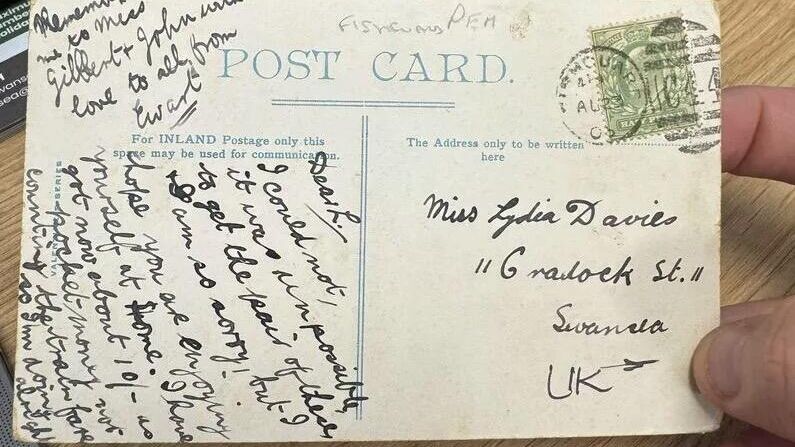 Remember
me to Miss
Gilbert + John with
love to all from
Ewart
FISHGUARD PEM
POST CARD.
For INLAND Postage only this
space may be used for communication.
The Address only to be written
here
Dear L.
I could not,
it was impossible
to get the pair of these
I am so sorry! but I
hope you are enjoying
yourself at home. I have
got now about 10/- as
pocket-money not
counting the train fare
so I'm doing
alright
Miss Lydia Davies
"Cradock St."
Swansea
UK
AU 23